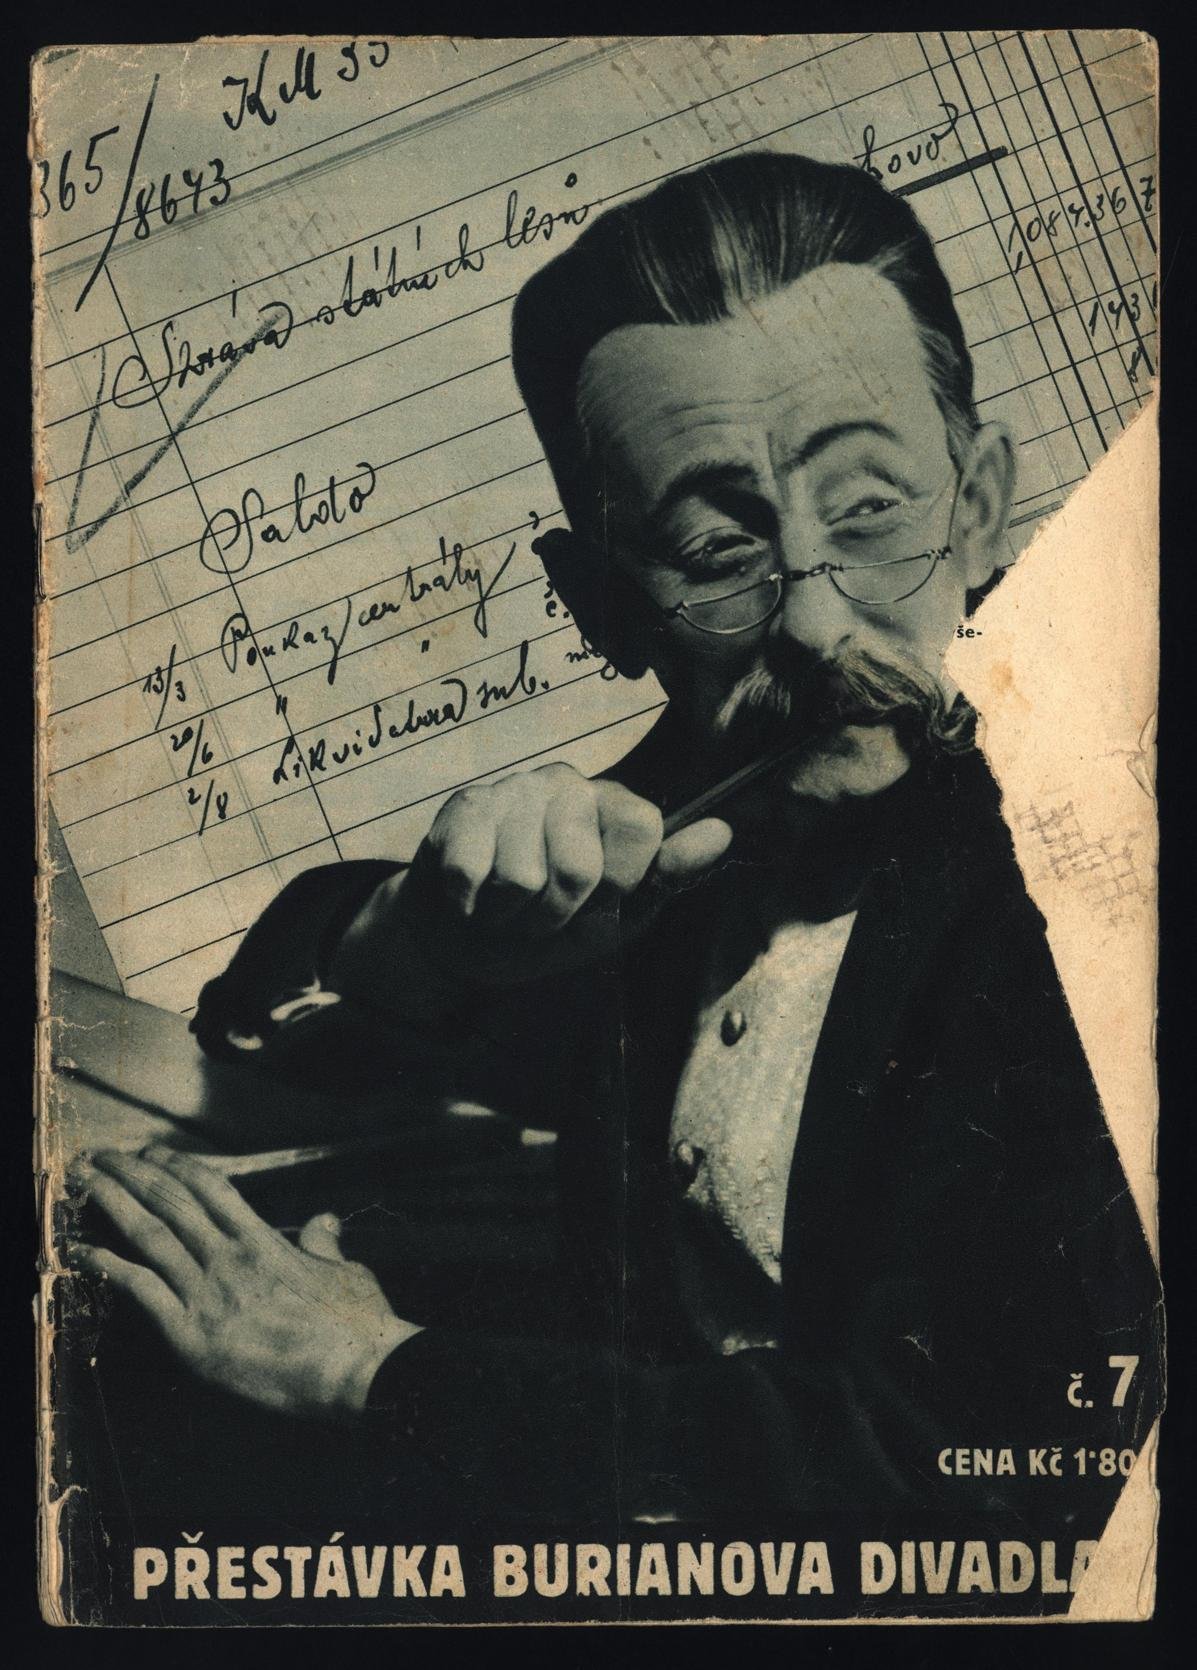 KM 33
365/8643
Správa státních lesů
hovo
1,084.367
143
Saldo
13/3 Poukaz centrály
20/6 " "
2/8 Likvidebra sub.
č.
še-
č. 7
CENA Kč 1·80
PŘESTÁVKA BURIANOVA DIVADLA